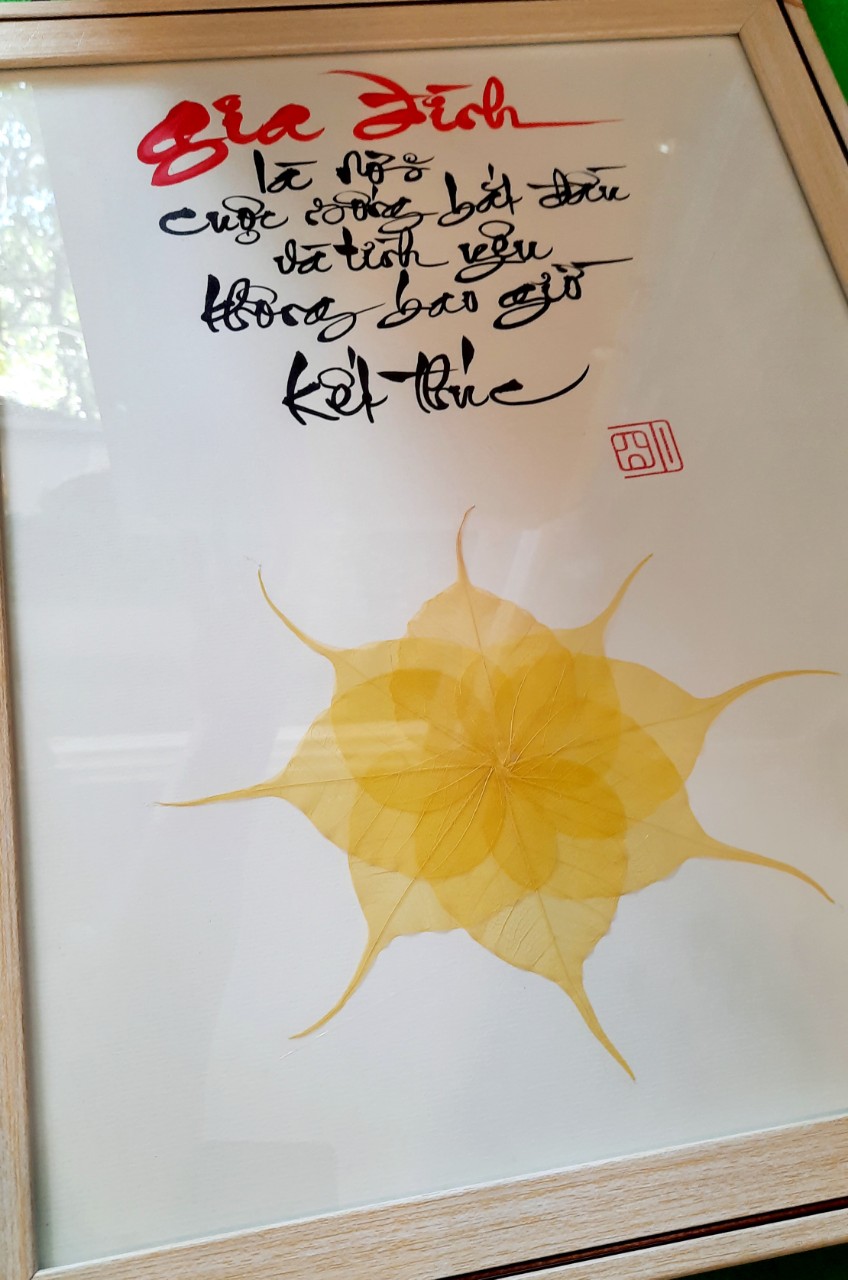 gia đình
là nơi
cuộc sống bắt đầu
và tình yêu
không bao giờ
kết thúc